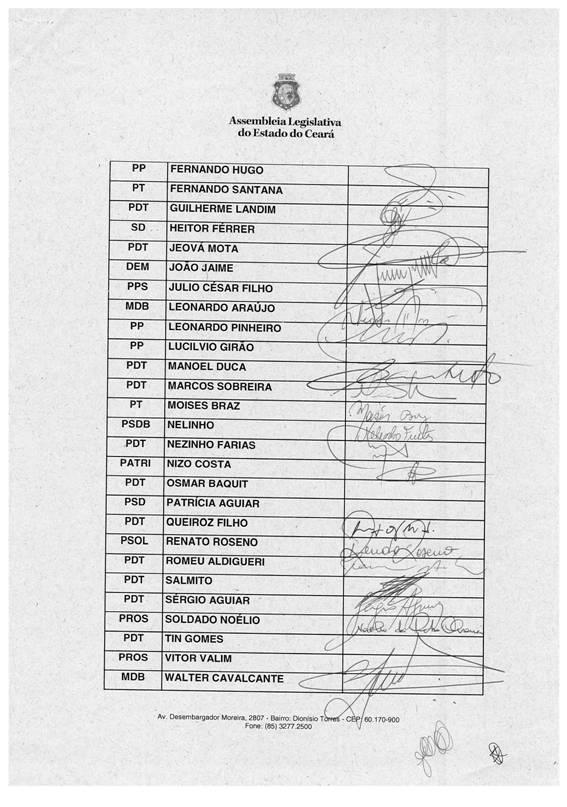 Assembleia Legislativa
do Estado do Ceará
PP FERNANDO HUGO
PT FERNANDO SANTANA
PDT GUILHERME LANDIM
SD HEITOR FÉRRER
PDT JEOVÁ MOTA
DEM JOÃO JAIME
PPS JULIO CÉSAR FILHO
MDB LEONARDO ARAÚJO
PP LEONARDO PINHEIRO
PP LUCILVIO GIRÃO
PDT MANOEL DUCA
PDT MARCOS SOBREIRA
PT MOISES BRAZ
PSDB NELINHO
PDT NEZINHO FARIAS
PATRI NIZO COSTA
PDT OSMAR BAQUIT
PSD PATRÍCIA AGUIAR
PDT QUEIROZ FILHO
PSOL RENATO ROSENO
PDT ROMEU ALDIGUERI
PDT SALMITO
PDT SÉRGIO AGUIAR
PROS SOLDADO NOÉLIO
PDT TIN GOMES
PROS VITOR VALIM
MDB WALTER CAVALCANTE
Av. Desembargador Moreira, 2807 - Bairro: Dionísio Torres - CEP: 60.170-900
Fone: (85) 3277.2500